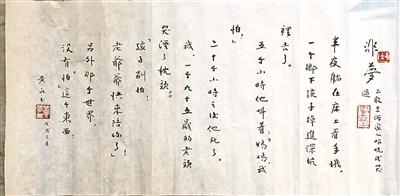 非夢
半夜躺在床上看手機，
一个鄉下孩子掉進深坑
裡去了。
五个小時他叫着：媽媽，我
怕！
二十个小時之後他死了。
我，一个九十五歲的老頭
哭溼了枕頭。
孩子别怕！
老爺爺快來陪你了！
另外那个世界，
沒有"怕"這个東西！
黄永玉
戊戌三月